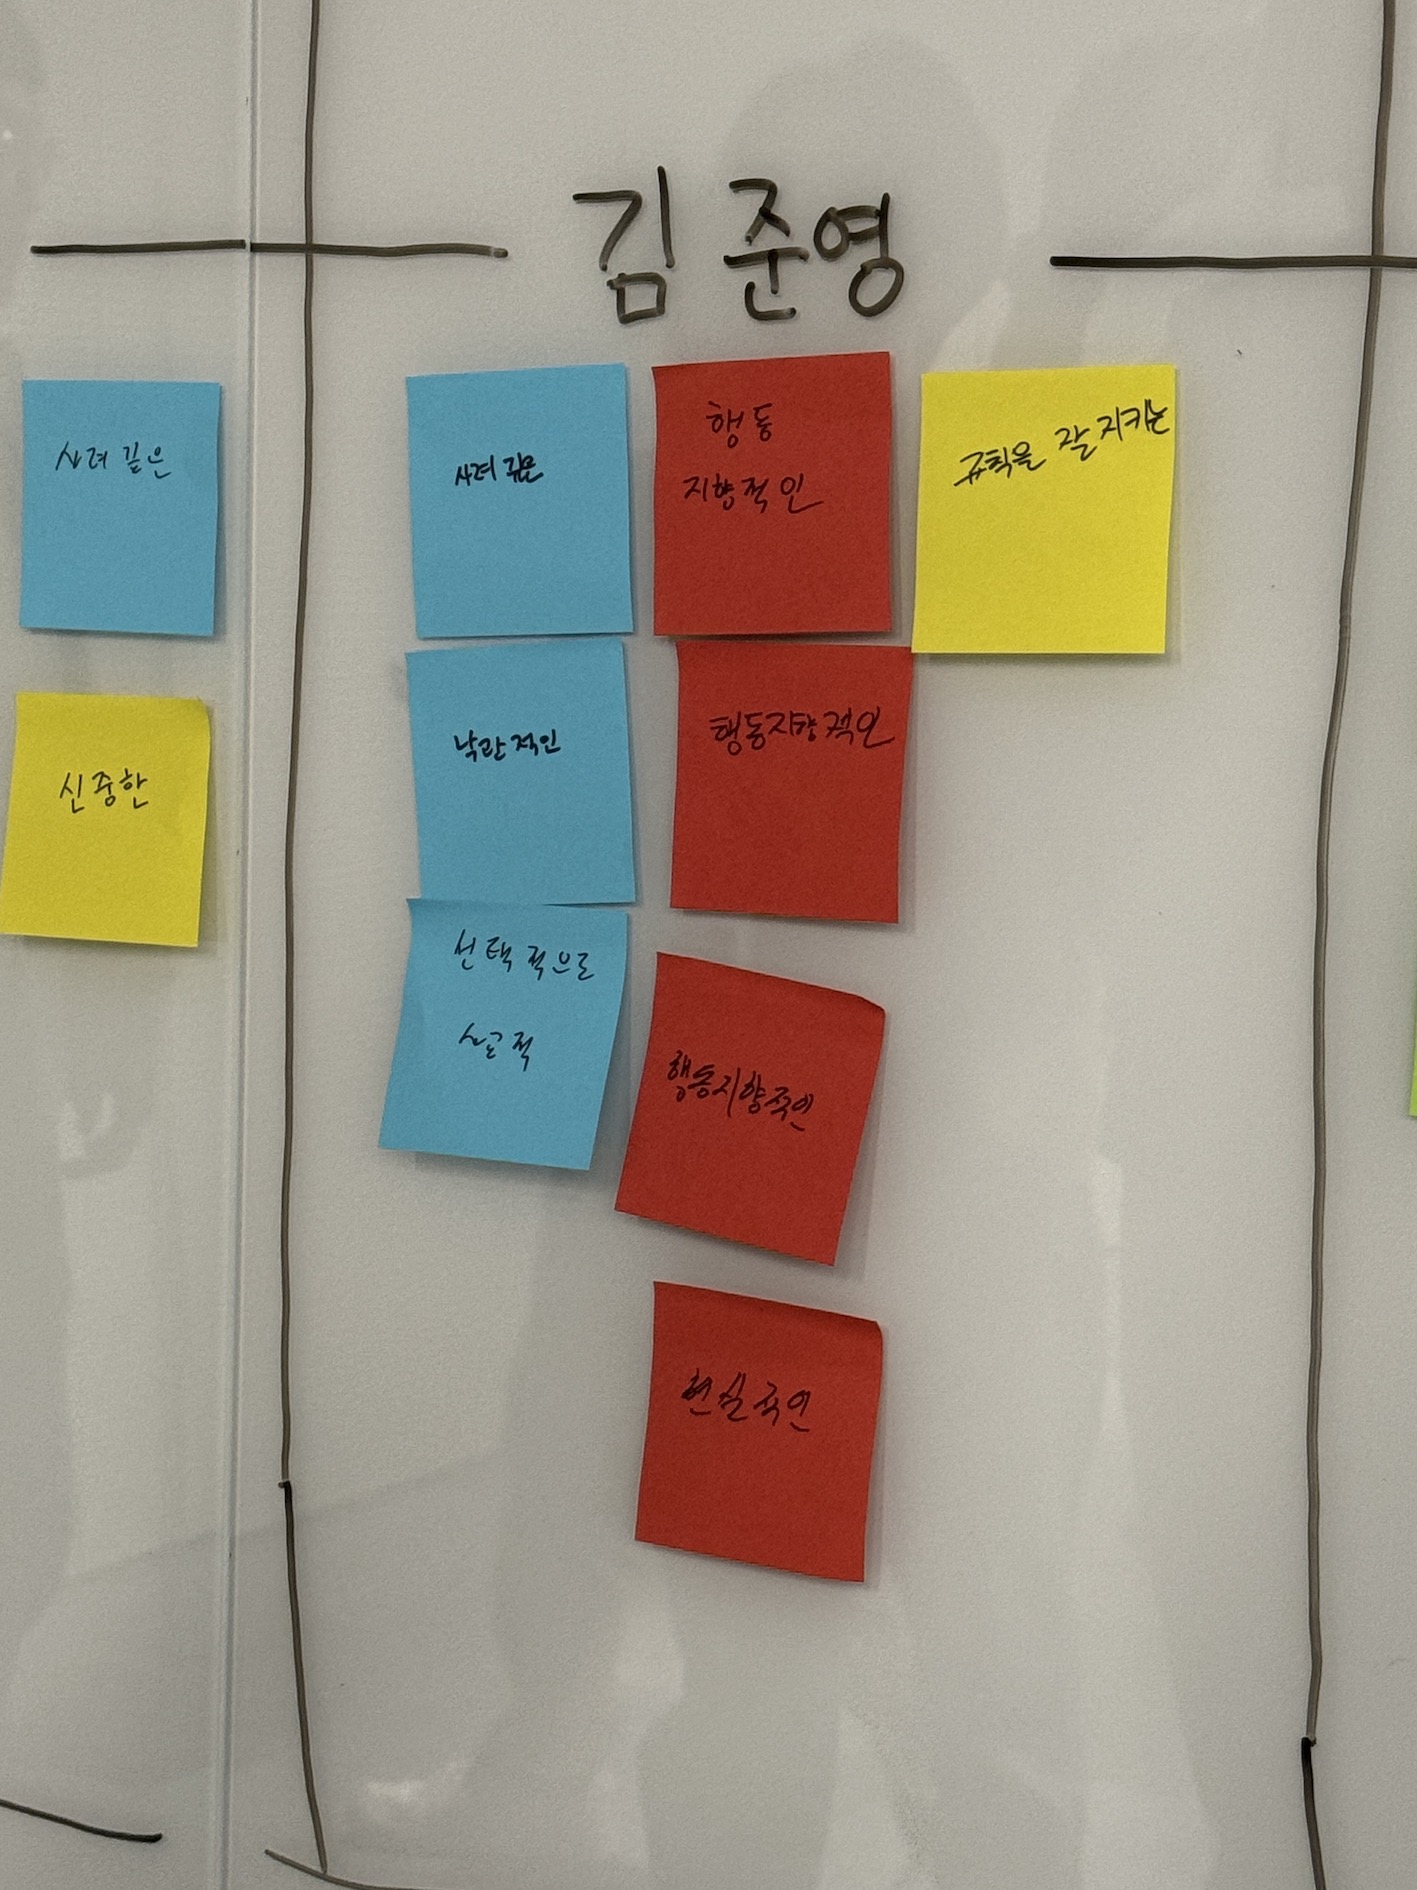 김준영
사려 깊은
신중한
사려 깊은
낙관적인
선택적으로
사교적
행동
지향적인
행동지향적인
행동지향적인
현실적인
규칙을 잘 지키는